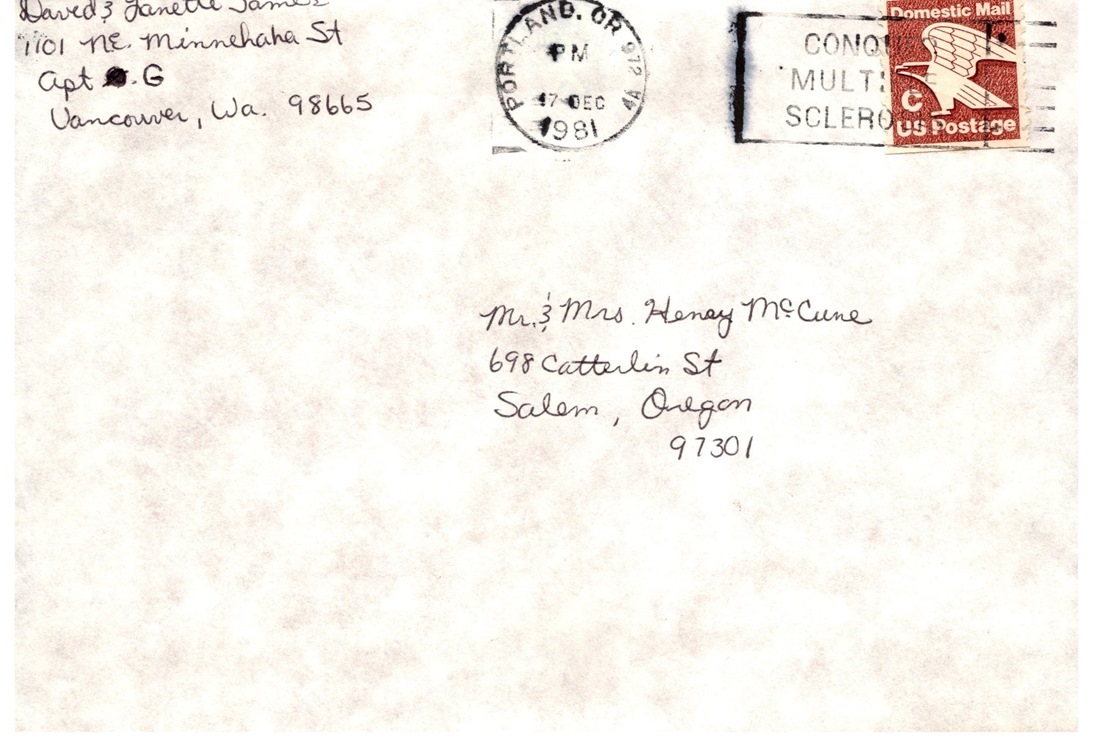 David & Janette James
1101 NE. Minnehaha St
Apt G
Vancouver, Wa. 98665
PORTLAND, OR 972
PM
17 DEC
1981
4A
CONQU
MULTI E
SCLERO
Domestic Mail
C
US Postage
Mr. & Mrs. Henry McCune
698 Catterlin St
Salem, Oregon
97301